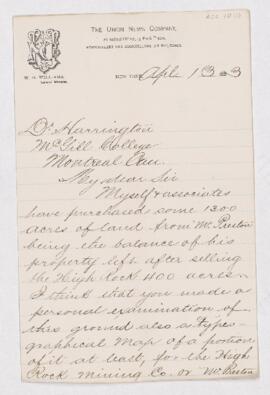 THE UNION NEWS COMPANY,
NEW YORK, Apl 13
Dr. Harrington
McGill College
Montreal Can.
My dear Sir
Myself & associates
have purchased some 1300
acres of land from Mr. Preston
being the balance of his
property left after selling
the High Rock 400 acres.
I think that you made a
personal examination of
this ground also a typo-
graphical Map of a portion
of it at least, for the High
Rock Mining Co. or Mr Preston